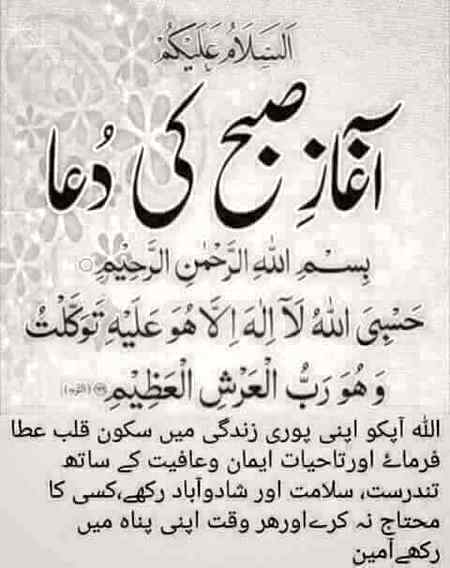 اَلسَّلَامُ عَلَيْكُمْ
آغازِ صبح کی دُعا
بِسْمِ اللّٰهِ الرَّحْمٰنِ الرَّحِيْمِ
حَسْبِىَ اللّٰهُ لَآ اِلٰهَ اِلَّا هُوَ عَلَيْهِ تَوَكَّلْتُ
وَهُوَ رَبُّ الْعَرْشِ الْعَظِيْمِ
الله آپکو اپنی پوری زندگی میں سکون قلب عطا
فرمائے اورتاحیات ایمان وعافیت کے ساتھ
تندرست، سلامت اور شادوآباد رکھے،کسی کا
محتاج نہ کرےاورھر وقت اپنی پناہ میں
رکھےآمین